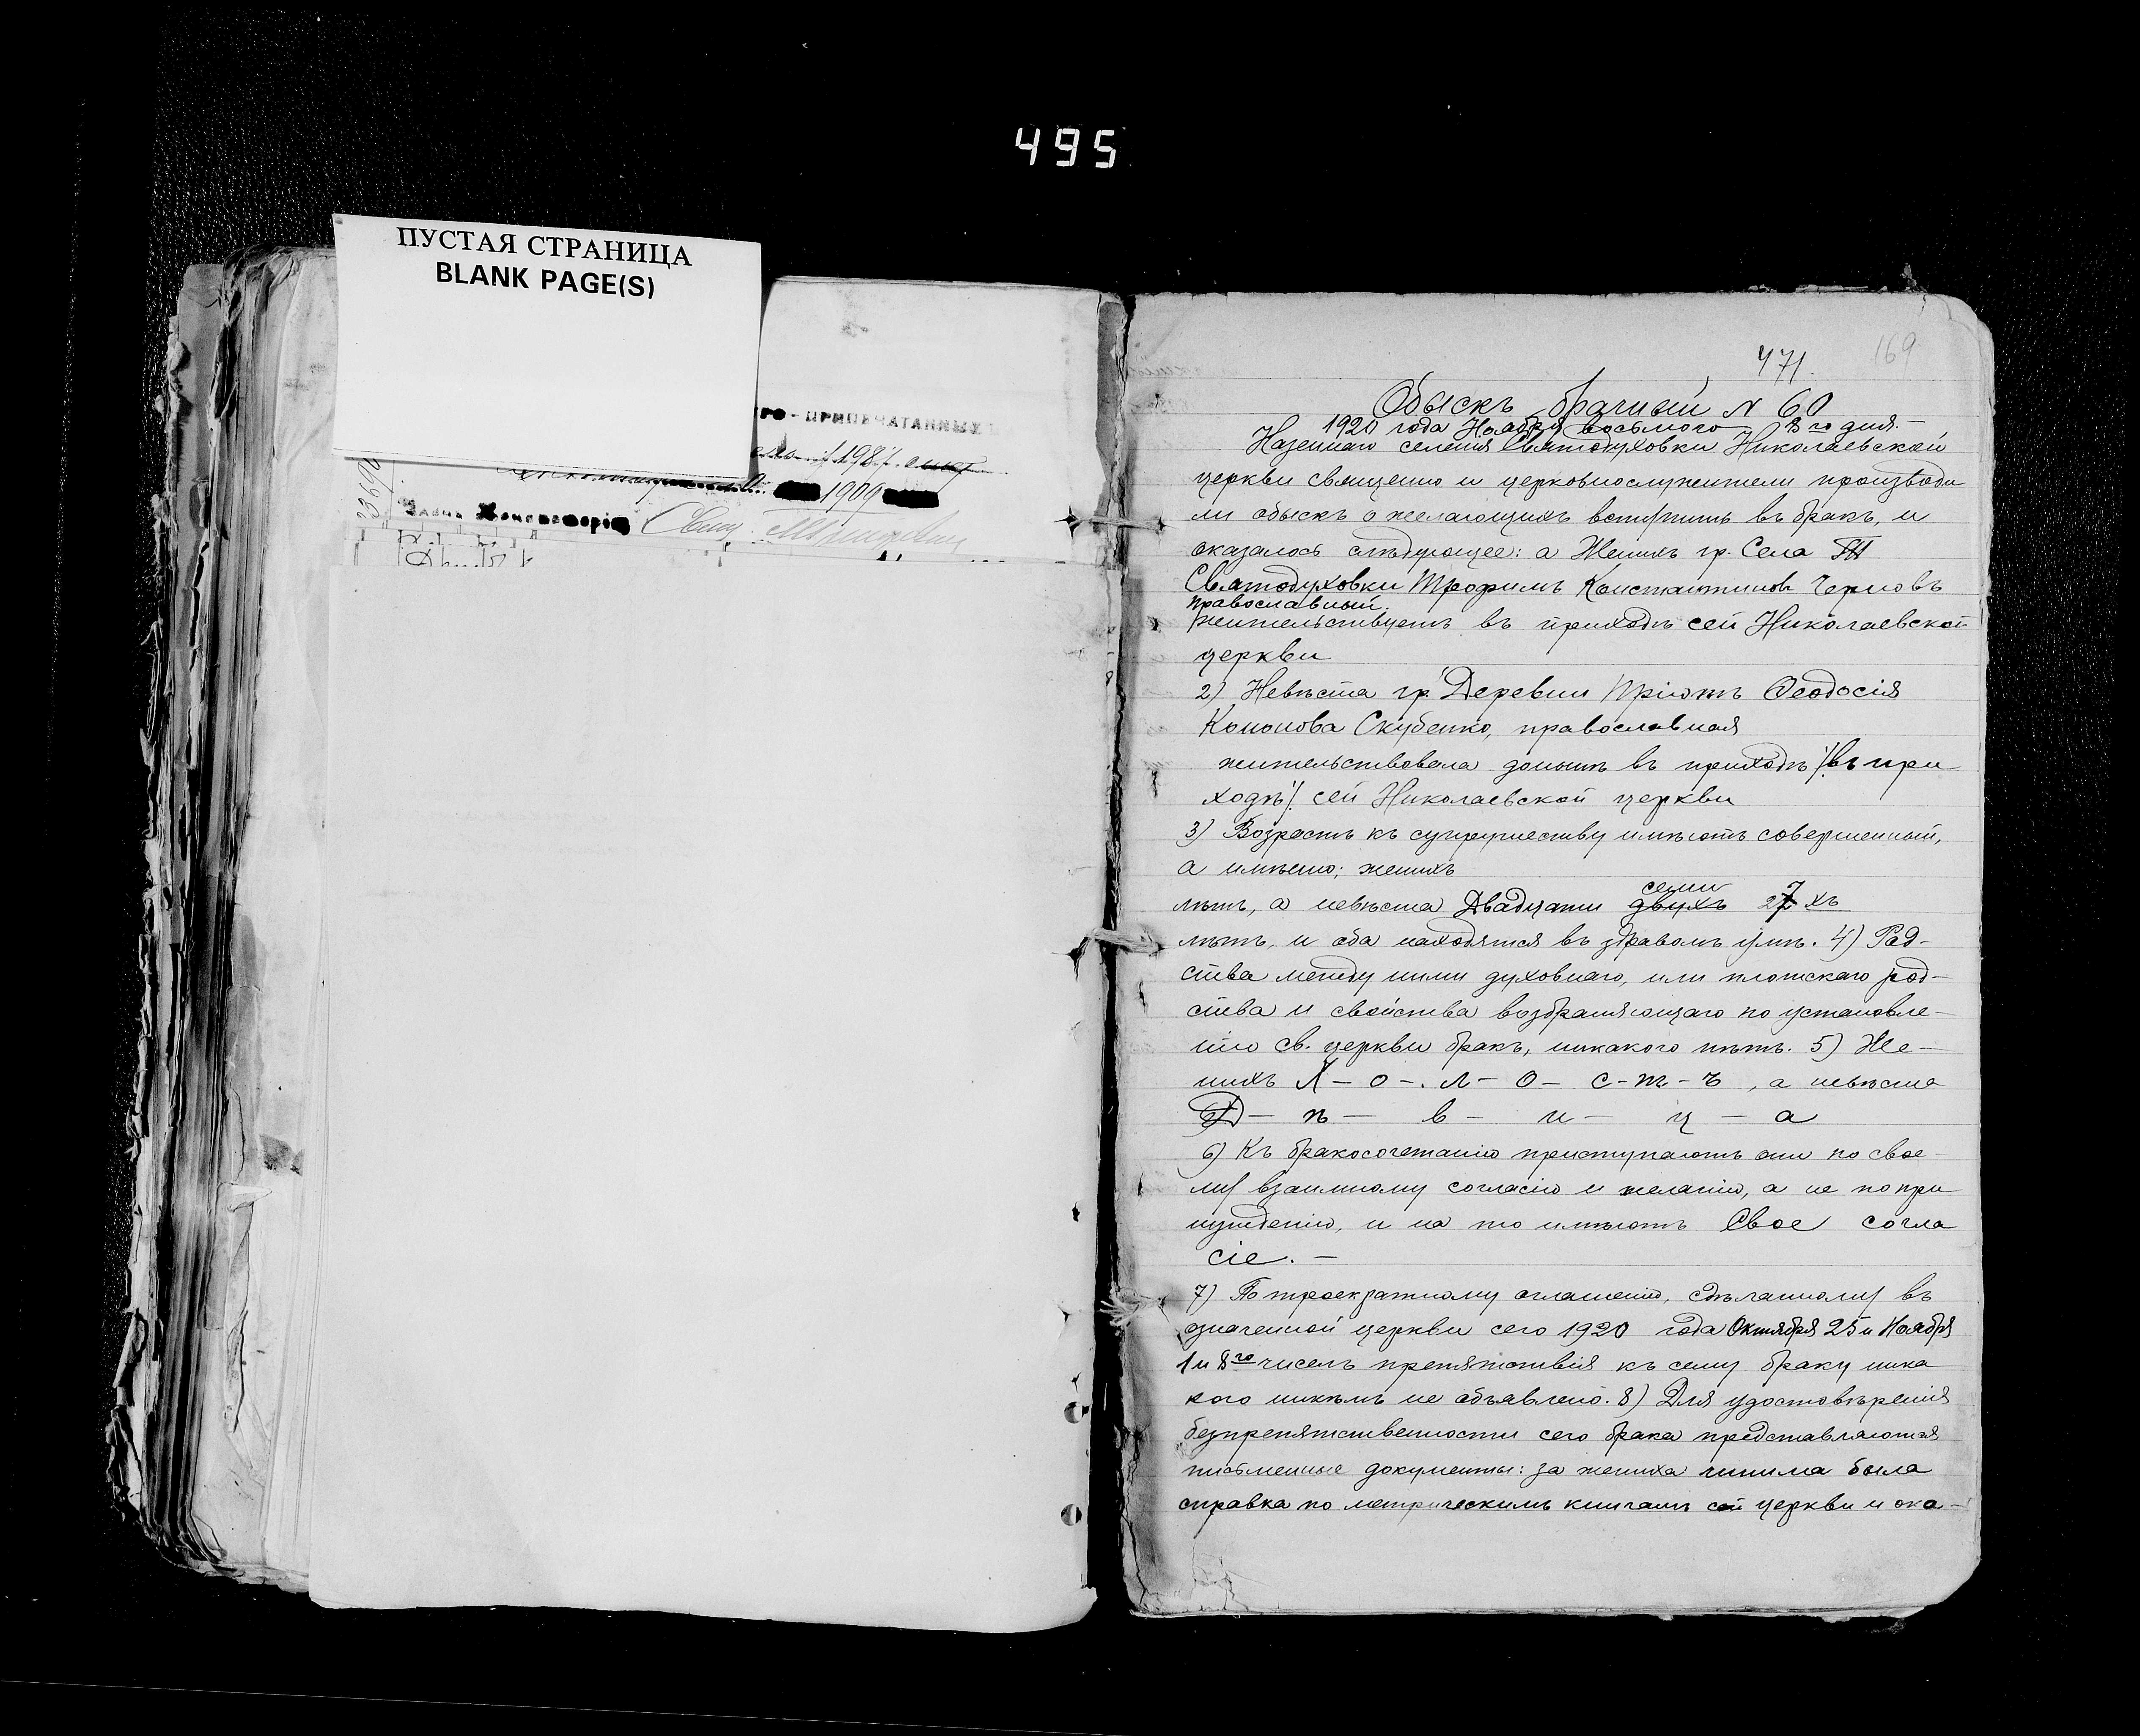 495
ПУСТАЯ СТРАНИЦА
BLANK PAGE(S)
ПРИПЕЧАТАННЫХЪ
1909
471.
169
Обыскъ брачный N 60
1920 года Ноября восьмого 8 го дня. –
Казеннаго селенія Святодуховки Николаевской
церкви священно и церковнослужители производи
ли обыскъ о желающихъ вступить въ бракъ, и
оказалось слѣдующее: а Женихъ гр. Села
Святодуховки Трофимъ Константинов Черновъ
православный.
жительствуетъ въ приходѣ сей Николаевской
церкви
2) Невѣста гр. Деревни Пріютъ Ѳеодосія
Кононова Скубенко, православная
жительствовала донынѣ въ приходѣ /въ при
ходѣ/ сей Николаевской церкви
3) Возрастъ къ супружеству имѣютъ совершенный,
а имѣнно; женихъ
семи
лѣтъ, а невѣста Двадцати двухъ 27 хъ
лѣтъ, и оба находятся въ здравомъ умѣ. 4) Род-
ства между ними духовнаго, или плотскаго род-
ства и свойства возбраняющаго по установле-
нію св. церкви бракъ, никакого нѣтъ. 5) Же-
нихъ Х – о –. л – о – с – т – ъ , а невѣста
Д – ѣ – в – и – ц – а
6) Къ бракосочетанію приступаютъ они по свое-
му взаимному согласію и желанію, а не по при
нужденію, и на то имѣютъ Свое согла
сіе. –
7) По троекратному оглашенію, сдѣланному въ
означенной церкви сего 1920 года Октября 25 и Ноября
1 и 8го чиселъ препятствія къ сему браку ника
кого никѣмъ не объявлено. 8) Для удостовѣренія
безпрепятственности сего брака представляются
письменные документы: за жениха чинима была
справка по метрическимъ книгамъ сей церкви и ока-